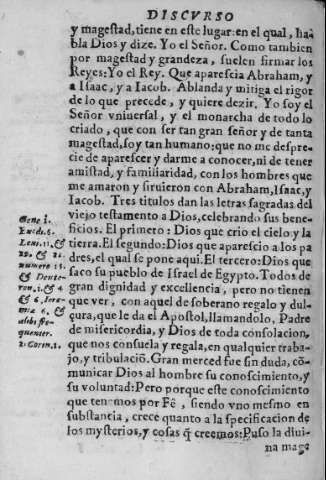 DISCVRSO
y magestad, tiene en este lugar: en el qual, ha-
bla Dios y dize. Yo el Señor. Como tambien
por magestad y grandeza, suelen firmar los
Reyes: Yo el Rey. Que aparescia Abraham, y
a Isaac, y a Iacob. Ablanda y mitiga el rigor
de lo que precede, y quiere dezir. Yo soy el
Señor vniuersal, y el monarcha de todo lo
criado, que con ser tan gran señor y de tanta
magestad, soy tan humano: que no me despre-
cie de aparescer y darme a conocer, ni de tener
amistad, y familiaridad, con los hombres que
me amaron y siruieron con Abraham, Isaac, y
Iacob. Tres titulos dan las letras sagradas del
viejo testamento a Dios, celebrando sus bene-
ficios. El primero: Dios que crio el cielo y la
tierra. El segundo: Dios que aparescio a los pa-
dres, el qual se pone aqui. El tercero: Dios que
saco su pueblo de Israel de Egypto. Todos de
gran dignidad y excellencia, pero no tienen
que ver, con aquel de soberano regalo y dul-
çura, que le da el Apostol, llamandolo, Padre
de misericordia, y Dios de toda consolacion,
que nos consuela y regala, en qualquier traba-
jo, y tribulaciõ. Gran merced fue sin duda, cõ-
municar Dios al hombre su conoscimiento, y
su voluntad: Pero porque este conoscimiento
que tenemos por Fè, siendo vno mesmo en
substancia, crece quanto a la specificacion de
los mysterios, y cosas q̃ creemos: Puso la diui-
na mage
Gene 1.
Exod. 6.
Leui. 11. &
22. & 25.
numero 15.
& Deute-
ron. 1. & 4
& 6. Iere-
miæ 6. &
alibi fre-
quenter.
2. Corin. 1.